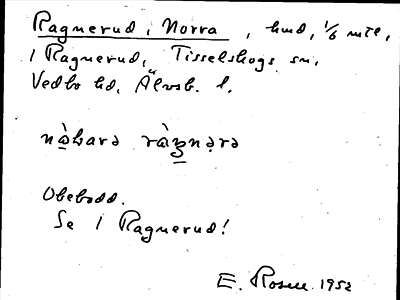 Ragnerud, Norra, hmd, 1/6 mtl,
1 Ragnerud, Tisselskogs sn,
Vedbo hd, Älvsb. l.
nò̱harə ràʒ̱nərə
Obebodd.
Se 1 Ragnerud!
E. Rosen 1952